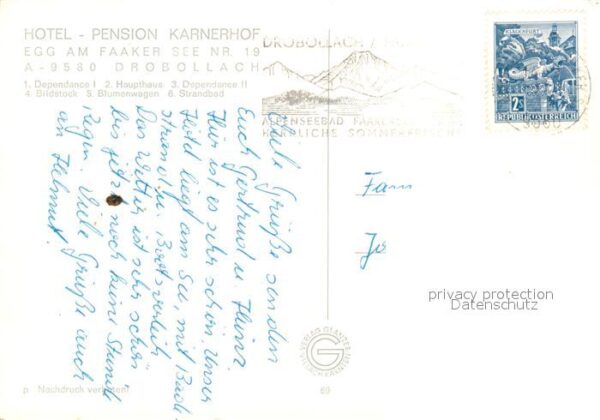 HOTEL - PENSION KARNERHOF
EGG AM FAAKER SEE NR. 19
A-9580 DROBOLLACH
1. Dependance I 2. Haupthaus 3. Dependance II
4. Bildstock 5. Blumenwagen 6. Strandbad
DROBOLLACH /
ALPENSEEBAD FAAKERSEE
HERRLICHE SOMMERFRISCHE
KLAGENFURT
2S
REPUBLIK ÖSTERREICH
Viele Grüße senden
Euch Gertrud u. Heinz
Hier ist es sehr schön. Unser
Hotel liegt am See, mit Bade-
strand u. Bootsverleih
Das Wetter ist sehr schön
bis jetzt noch keine Stunde
Regen. Viele Grüße auch
an Helmut.
Fam
Je
privacy protection
Datenschutz
p Nachdruck verboten!
69